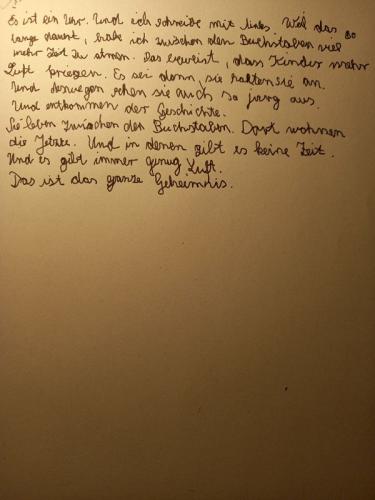 Es ist ein Uhr. Und ich schreibe mit links. Weil das so
lange dauert, habe ich zwischen den Buchstaben viel
mehr Zeit zu atmen. Das beweist, dass Kinder mehr
Luft kriegen. Es sei denn, sie halten sie an.
Und deswegen sehen sie auch so jung aus.
Und entkommen der Geschichte.
Sie leben zwischen den Buchstaben. Dort wohnen
die Jetzte. Und in denen gibt es keine Zeit.
Und es gibt immer genug Luft.
Das ist das ganze Geheimnis.